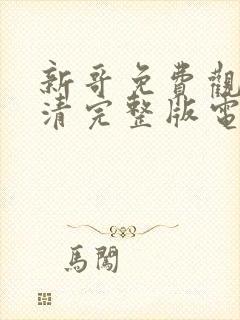 新哥免費觀
清完整版電
馬闖